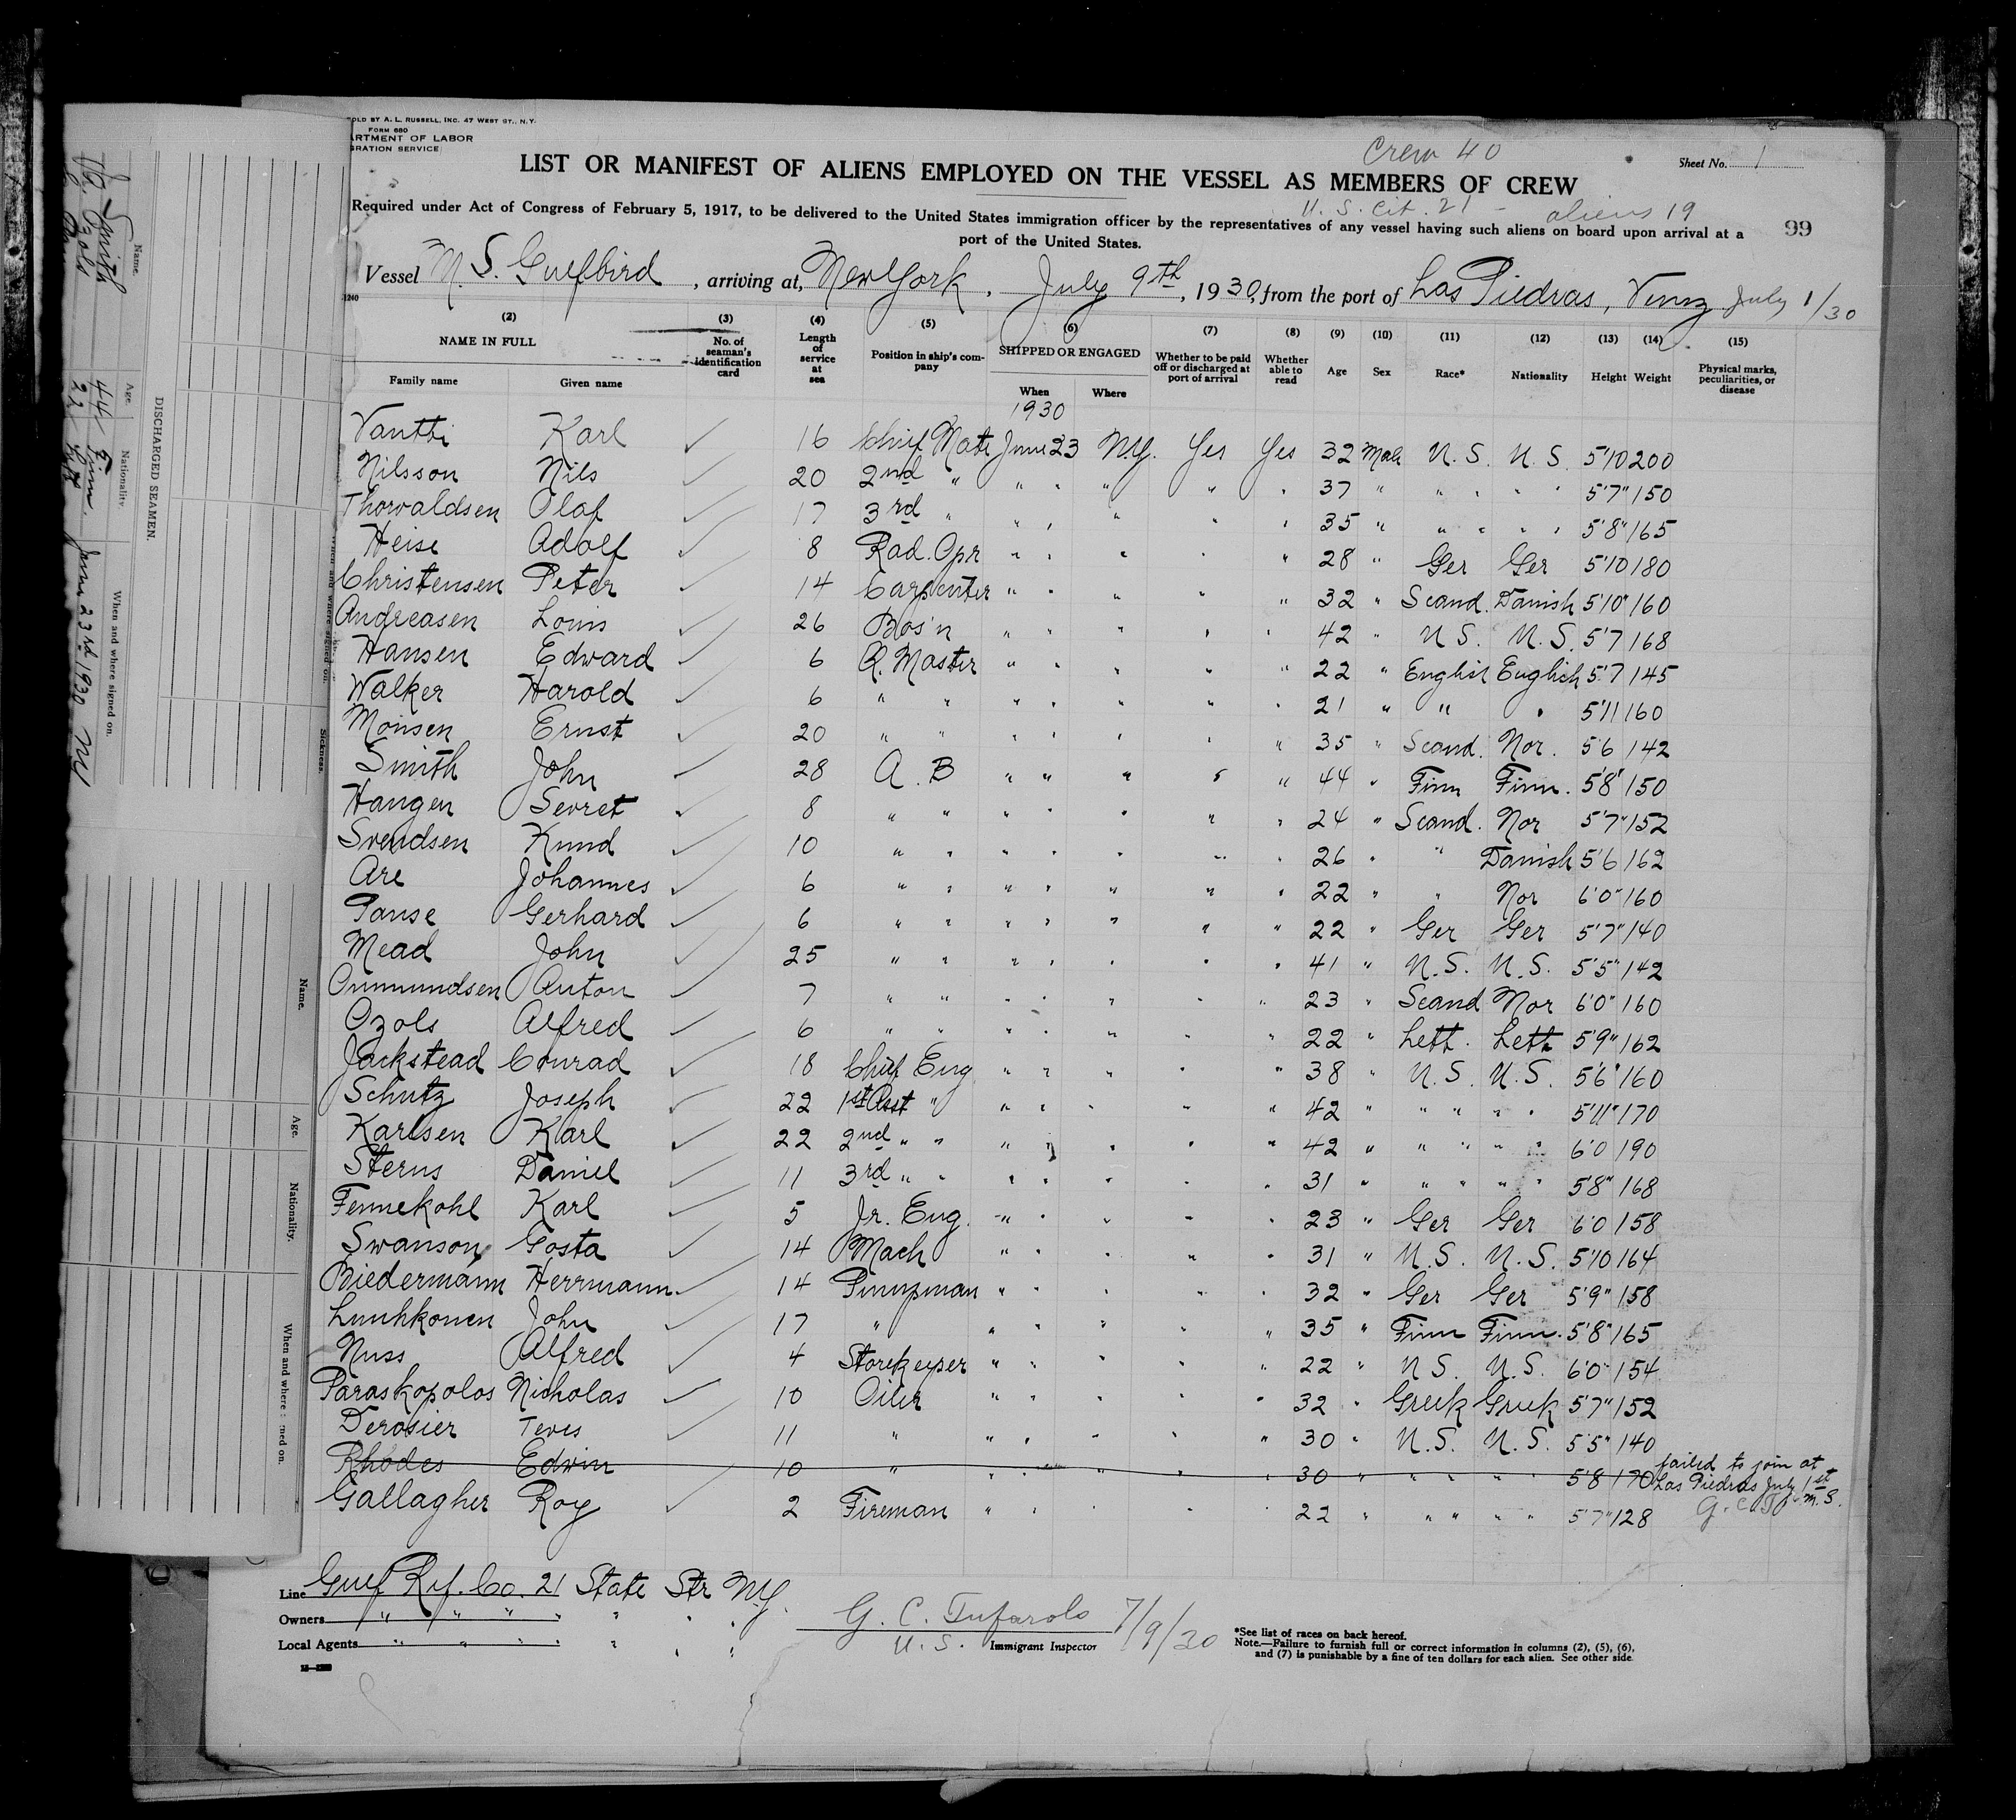 SOLD BY A. L. RUSSELL, INC. 47 WEST ST., N.Y.
FORM 680
ARTMENT OF LABOR
GRATION SERVICE
Crew 40
Sheet No. 1
LIST OR MANIFEST OF ALIENS EMPLOYED ON THE VESSEL AS MEMBERS OF CREW
U. S. Cit. 21 - aliens 19
Required under Act of Congress of February 5, 1917, to be delivered to the United States immigration officer by the representatives of any vessel having such aliens on board upon arrival at a
port of the United States.
99
Vessel M. S. Gulfbird, arriving at, New York, July 9th, 1930, from the port of Las Piedras, Venz July 1/30
(2) (3) (4) (5) (6) (7) (8) (9) (10) (11) (12) (13) (14) (15)
NAME IN FULL No. of seaman's identification card Length of service at sea Position in ship's company SHIPPED OR ENGAGED Whether to be paid off or discharged at port of arrival Whether able to read Age Sex Race* Nationality Height Weight Physical marks, peculiarities, or disease
Family name Given name When Where
1930
Karl ✓ 16 Chief Mate June 23 NY. Yes Yes 32 Male U. S. U. S. 5'10 200
Nilsson Nils ✓ 20 2nd " " " " " " 37 " " " " " 5'7" 150
Thorvaldsen Olaf ✓ 17 3rd " " " " " " 35 " " " " " 5'8" 165
Heise Adolf ✓ 8 Rad. Opr " " " " " 28 " Ger Ger 5'10 180
Christensen Peter ✓ 14 Carpenter " " " " " 32 " Scand. Danish 5'10" 160
Andreasen Louis ✓ 26 Bos'n " " " " " 42 " U S. U. S. 5'7 168
Hansen Edward ✓ 6 Q. Master " " " " " 22 " English English 5'7 145
Walker Harold ✓ 6 " " " " " " " 21 " " " 5'11 160
Monsen Ernst ✓ 20 " " " " " " " 35 " Scand. Nor. 5'6 142
Smith John ✓ 28 A. B " " " " " 44 " Finn Finn. 5'8" 150
Haugen Sevret ✓ 8 " " " " " " " 24 " Scand. Nor 5'7" 152
Svendsen Knud ✓ 10 " " " " " " " 26 " " Danish 5'6 162
Are Johannes ✓ 6 " " " " " " " 22 " " Nor 6'0" 160
Pause Gerhard ✓ 6 " " " " " " " 22 " Ger Ger 5'7" 140
Mead John ✓ 25 " " " " " " " 41 " U. S. U. S. 5'5" 142
Anton ✓ 7 " " " " " " " 23 " Scand Nor 6'0" 160
Ozols Alfred ✓ 6 " " " " " " " 22 " Lett. Lett 5'9" 162
Jackstead Conrad ✓ 18 Chief Eng " " " " " 38 " U. S. U. S. 5'6" 160
Schutz Joseph ✓ 22 1st Asst " " " " " " 42 " " " " " 5'11" 170
Karlsen Karl ✓ 22 2nd " " " " " " " 42 " " " " " 6'0 190
Sterns Daniel ✓ 11 3rd " " " " " " " 31 " " " " " 5'8" 168
Fennekohl Karl ✓ 5 Jr. Eng. " " " " " 23 " Ger Ger 6'0 158
Swanson Gosta ✓ 14 Mach " " " " " 31 " U. S. U. S. 5'10 164
Biedermann Herrmann ✓ 14 Pumpman " " " " " 32 " Ger Ger 5'9" 158
Luuhkonen John ✓ 17 " " " " " " 35 " Finn Finn. 5'8" 165
Nuss Alfred ✓ 4 Storekeeper " " " " " 22 " U S. U. S. 6'0" 154
Paraskopolos Nicholas ✓ 10 Oiler " " " " " 32 " Greek Greek 5'7" 152
Derosier Teves ✓ 11 " " " " " " 30 " U. S. U. S. 5'5" 140
Rhodes Edwin 10 " " " " " " 30 " " " " " 5'8 170 failed to join at Las Piedras July 1st
Gallagher Roy ✓ 2 Fireman " " " " " 22 " " " " " 5'7" 128
Line Gulf Ref. Co. 21 State Str NY.
Owners " " " " " " "
Local Agents " " " " " " "
G. C. Tufarolo 7/9/30
U. S. Immigrant Inspector
*See list of races on back hereof.
Note.—Failure to furnish full or correct information in columns (2), (5), (6),
and (7) is punishable by a fine of ten dollars for each alien. See other side
DISCHARGED SEAMEN.
Name. Age. Nationality. When and where signed on.
Smith 44 Finn. June 23rd 1930 NY
Ozols 22
Sickness.
Name. Age. Nationality. When and where signed on.